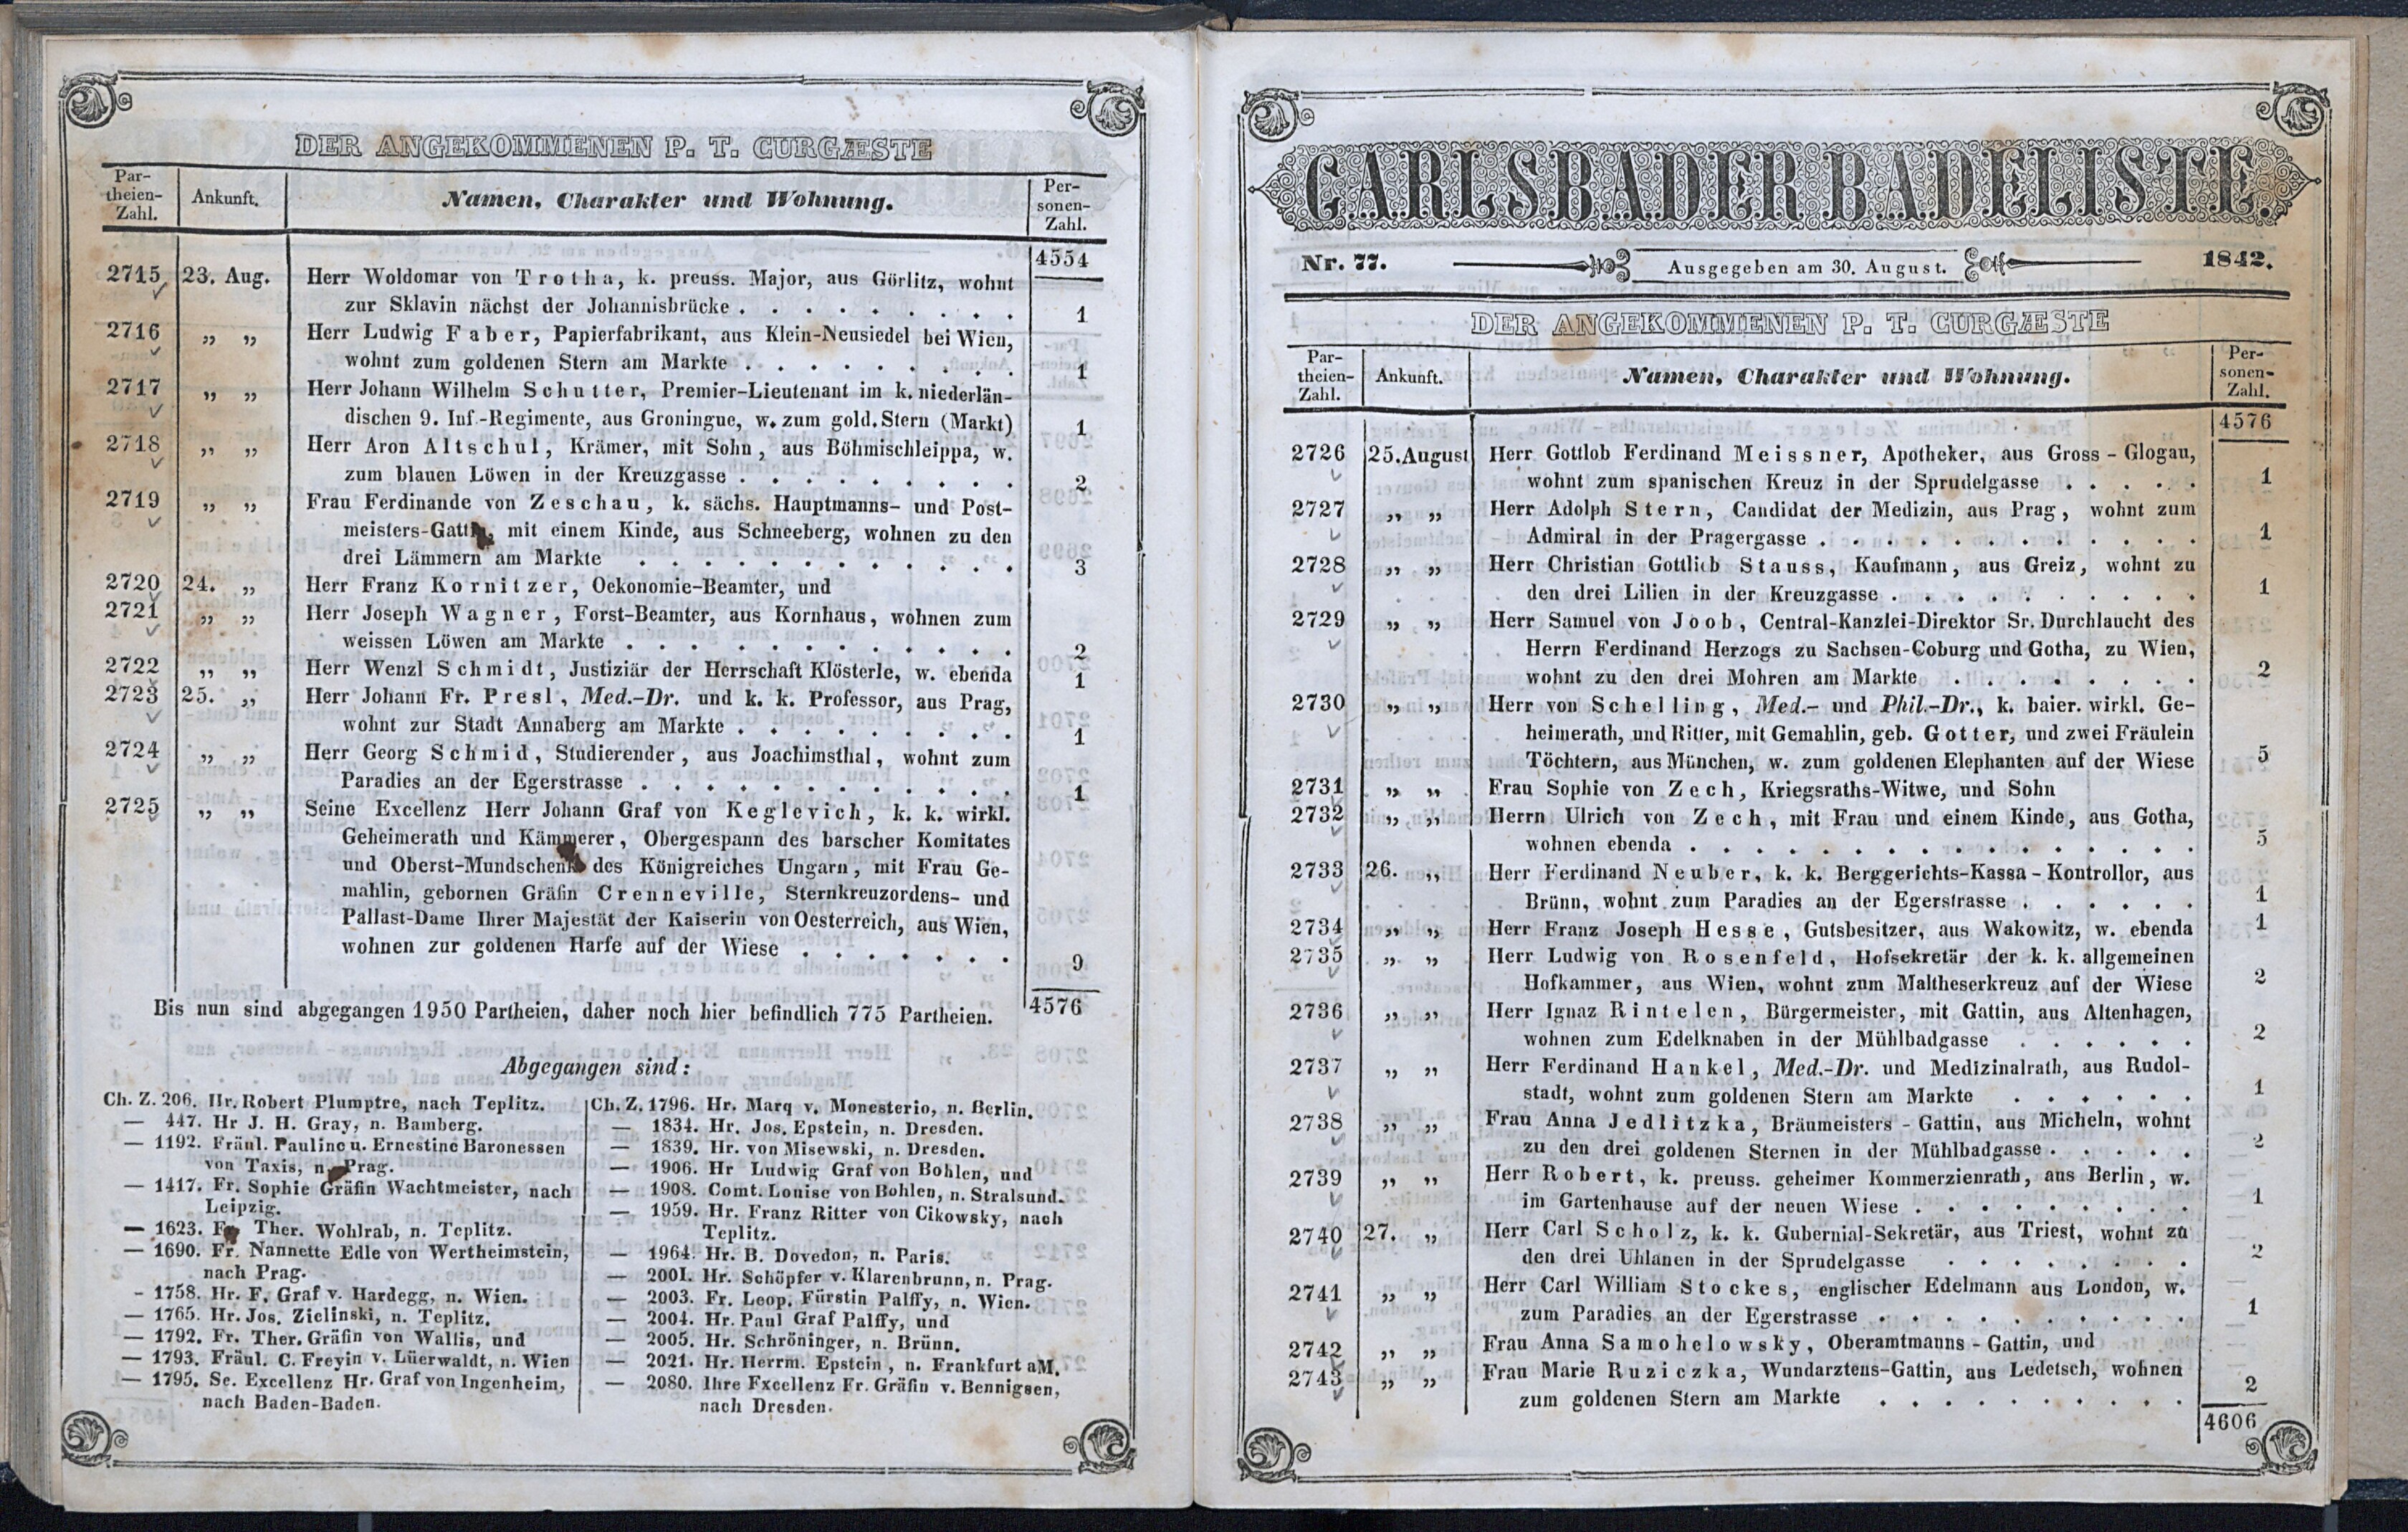 DER ANGEKOMMENEN P. T. CURGÆSTE
Par-
theien-
Zahl.
Ankunft.
Namen, Charakter und Wohnung.
Per-
sonen-
Zahl.
4554
2715 23. Aug. Herr Woldomar von Trotha, k. preuss. Major, aus Görlitz, wohnt
zur Sklavin nächst der Johannisbrücke . . . . . . . . . 1
2716 „ „ Herr Ludwig Faber, Papierfabrikant, aus Klein-Neusiedel bei Wien,
wohnt zum goldenen Stern am Markte . . . . . . . . . 1
2717 „ „ Herr Johann Wilhelm Schutter, Premier-Lieutenant im k. niederlän-
dischen 9. Inf.-Regimente, aus Groningue, w. zum gold. Stern (Markt) 1
2718 „ „ Herr Aron Altschul, Krämer, mit Sohn, aus Böhmischleippa, w.
zum blauen Löwen in der Kreuzgasse . . . . . . . . . 2
2719 „ „ Frau Ferdinande von Zeschau, k. sächs. Hauptmanns- und Post-
meisters-Gattin, mit einem Kinde, aus Schneeberg, wohnen zu den
drei Lämmern am Markte . . . . . . . . . . . . 3
2720 24. „ Herr Franz Kornitzer, Oekonomie-Beamter, und
2721 „ „ Herr Joseph Wagner, Forst-Beamter, aus Kornhaus, wohnen zum
weissen Löwen am Markte . . . . . . . . . . . . 2
2722 „ „ Herr Wenzl Schmidt, Justiziär der Herrschaft Klösterle, w. ebenda 1
2723 25. „ Herr Johann Fr. Presl, Med.-Dr. und k. k. Professor, aus Prag,
wohnt zur Stadt Annaberg am Markte . . . . . . . . . 1
2724 „ „ Herr Georg Schmid, Studierender, aus Joachimsthal, wohnt zum
Paradies an der Egerstrasse . . . . . . . . . . . . 1
2725 „ „ Seine Excellenz Herr Johann Graf von Keglevich, k. k. wirkl.
Geheimerath und Kämmerer, Obergespann des barscher Komitates
und Oberst-Mundschenk des Königreiches Ungarn, mit Frau Ge-
mahlin, gebornen Gräfin Crenneville, Sternkreuzordens- und
Pallast-Dame Ihrer Majestät der Kaiserin von Oesterreich, aus Wien,
wohnen zur goldenen Harfe auf der Wiese . . . . . . . 9
Bis nun sind abgegangen 1950 Partheien, daher noch hier befindlich 775 Partheien. 4576
Abgegangen sind:
Ch. Z. 206. Hr. Robert Plumptre, nach Teplitz.
— 447. Hr J. H. Gray, n. Bamberg.
— 1192. Fräul. Pauline u. Ernestine Baronessen
von Taxis, n. Prag.
— 1417. Fr. Sophie Gräfin Wachtmeister, nach
Leipzig.
— 1623. Fr. Ther. Wohlrab, n. Teplitz.
— 1690. Fr. Nannette Edle von Wertheimstein,
nach Prag.
- 1758. Hr. F. Graf v. Hardegg, n. Wien.
— 1765. Hr. Jos. Zielinski, n. Teplitz.
— 1792. Fr. Ther. Gräfin von Wallis, und
— 1793. Fräul. C. Freyin v. Lüerwaldt, n. Wien
— 1795. Se. Excellenz Hr. Graf von Ingenheim,
nach Baden-Baden.
Ch. Z. 1796. Hr. Marq v. Monesterio, n. Berlin.
— 1834. Hr. Jos. Epstein, n. Dresden.
— 1839. Hr. von Misewski, n. Dresden.
— 1906. Hr Ludwig Graf von Bohlen, und
— 1908. Comt. Louise von Bohlen, n. Stralsund.
— 1959. Hr. Franz Ritter von Cikowsky, nach
Teplitz.
— 1964. Hr. B. Dovedon, n. Paris.
— 2001. Hr. Schöpfer v. Klarenbrunn, n. Prag.
— 2003. Fr. Leop. Fürstin Palffy, n. Wien.
— 2004. Hr. Paul Graf Palffy, und
— 2005. Hr. Schröninger, n. Brünn.
— 2021. Hr. Herrm. Epstein, n. Frankfurt aM.
— 2080. Ihre Fxcellenz Fr. Gräfin v. Bennigsen,
nach Dresden.
CARLSBADER BADELISTE.
Nr. 77. Ausgegeben am 30. August. 1842.
DER ANGEKOMMENEN P. T. CURGÆSTE
Par-
theien-
Zahl.
Ankunft.
Namen, Charakter und Wohnung.
Per-
sonen-
Zahl.
4576
2726 25. August Herr Gottlob Ferdinand Meissner, Apotheker, aus Gross-Glogau,
wohnt zum spanischen Kreuz in der Sprudelgasse . . . . . 1
2727 „ „ Herr Adolph Stern, Candidat der Medizin, aus Prag, wohnt zum
Admiral in der Pragergasse . . . . . . . . . . . . 1
2728 „ „ Herr Christian Gottlieb Stauss, Kaufmann, aus Greiz, wohnt zu
den drei Lilien in der Kreuzgasse . . . . . . . . . . 1
2729 „ „ Herr Samuel von Joob, Central-Kanzlei-Direktor Sr. Durchlaucht des
Herrn Ferdinand Herzogs zu Sachsen-Coburg und Gotha, zu Wien,
wohnt zu den drei Mohren am Markte . . . . . . . . 2
2730 „ „ Herr von Schelling, Med.- und Phil.-Dr., k. baier. wirkl. Ge-
heimerath, und Ritter, mit Gemahlin, geb. Gotter, und zwei Fräulein
Töchtern, aus München, w. zum goldenen Elephanten auf der Wiese 5
2731 „ „ Frau Sophie von Zech, Kriegsraths-Witwe, und Sohn
2732 „ „ Herrn Ulrich von Zech, mit Frau und einem Kinde, aus Gotha,
wohnen ebenda . . . . . . . . . . . . . . . . 5
2733 26. „ Herr Ferdinand Neuber, k. k. Berggerichts-Kassa-Kontrollor, aus
Brünn, wohnt zum Paradies an der Egerstrasse . . . . . . 1
2734 „ „ Herr Franz Joseph Hesse, Gutsbesitzer, aus Wakowitz, w. ebenda 1
2735 „ „ Herr Ludwig von Rosenfeld, Hofsekretär der k. k. allgemeinen
Hofkammer, aus Wien, wohnt zum Maltheserkreuz auf der Wiese 2
2736 „ „ Herr Ignaz Rintelen, Bürgermeister, mit Gattin, aus Altenhagen,
wohnen zum Edelknaben in der Mühlbadgasse . . . . . . 2
2737 „ „ Herr Ferdinand Hankel, Med.-Dr. und Medizinalrath, aus Rudol-
stadt, wohnt zum goldenen Stern am Markte . . . . . . 1
2738 „ „ Frau Anna Jedlitzka, Bräumeisters-Gattin, aus Micheln, wohnt
zu den drei goldenen Sternen in der Mühlbadgasse . . . . . 2
2739 „ „ Herr Robert, k. preuss. geheimer Kommerzienrath, aus Berlin, w.
im Gartenhause auf der neuen Wiese . . . . . . . . . 1
2740 27. „ Herr Carl Scholz, k. k. Gubernial-Sekretär, aus Triest, wohnt zu
den drei Uhlanen in der Sprudelgasse . . . . . . . . 2
2741 „ „ Herr Carl William Stockes, englischer Edelmann aus London, w.
zum Paradies an der Egerstrasse . . . . . . . . . . 1
2742 „ „ Frau Anna Samohelowsky, Oberamtmanns-Gattin, und
2743 „ „ Frau Marie Ruziczka, Wundarztens-Gattin, aus Ledetsch, wohnen
zum goldenen Stern am Markte . . . . . . . . . . 2
4606